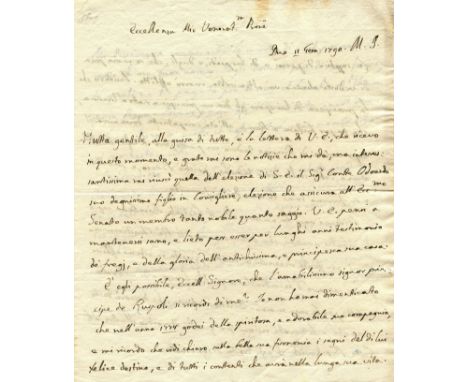 Eccellenza Mio Venerat.mo Prõe
Dux 11 Gen. 1790.
Molto gentile, alla guisa di tutte, è la lettera di V. E. che ricevo
in questo momento, e grate mi sono le notizie che mi dà, ma interes-
santissima mi riuscì quella dell'elezione di S. E. il Sig.r Conte Odoardo
suo degnissimo figlio in Consigliere, elezione che assicura all'Ecc.mo
Senato un membro tanto nobile quanto saggio. V. E. pensi a
mantenersi sano, e lieto per esser per lunghi anni testimonio
de' fregi, e della gloria dell'antichissima, e principesca sua casa.
È egli possibile, Eccell. Signore, che l'amabilissimo signor prin-
cipe de Ruspoli si ricordi di me? Io non ho mai dimenticato
che nell'anno godei della spiritosa, e adorabile sua compagnia,
e mi ricordo che vidi chiaro sulla bella sua fisonomia i segni del di lui
felice destino, e di tutti i contenti che avria nella lunga sua vita.